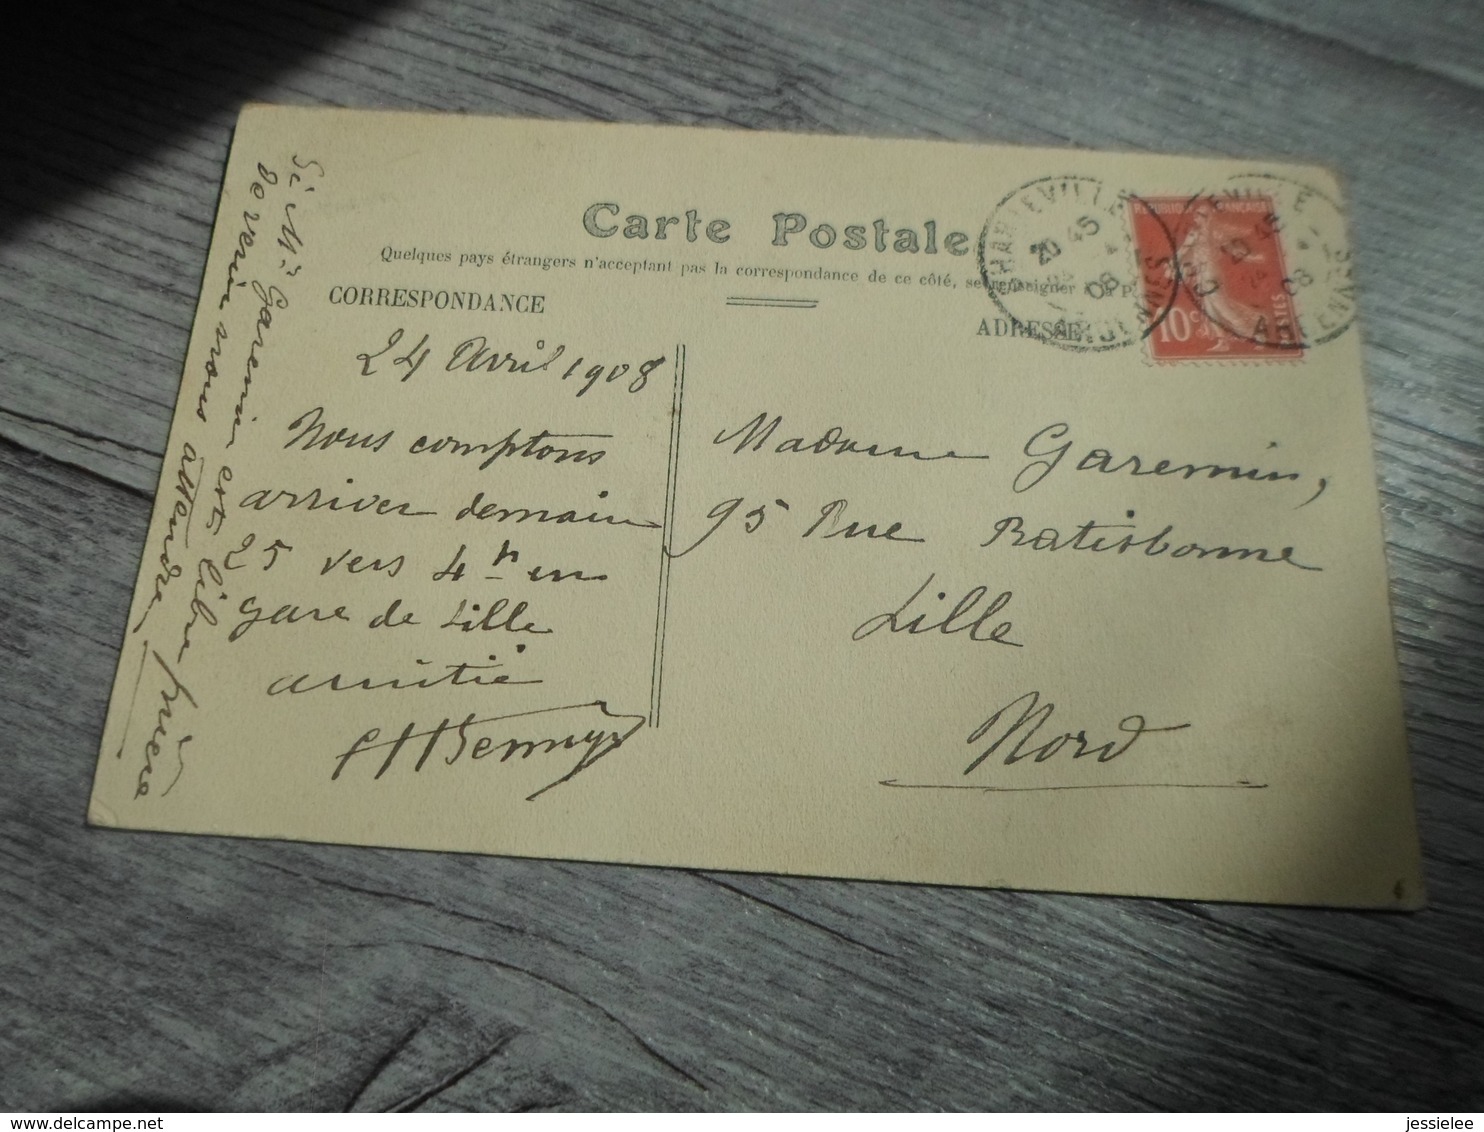 Carte Postale
Quelques pays étrangers n'acceptent pas la correspondance de ce côté, se renseigner à la P
CORRESPONDANCE
ADRESSE
24 Avril 1908
Nous comptons
arriver demain
25 vers 4 h en
gare de Lille
amitié
Si Mr Garemin est libre prière
de venir nous attendre
Madame Garemin,
95 Rue Ratisbonne
Lille
Nord
CHARLEVILLE
20 45
24 - 4
08
ARDENNES
REPUBLIQUE FRANÇAISE
10c
POSTES
CHARLEVILLE
20 45
24
08
ARDENNES
jessielee